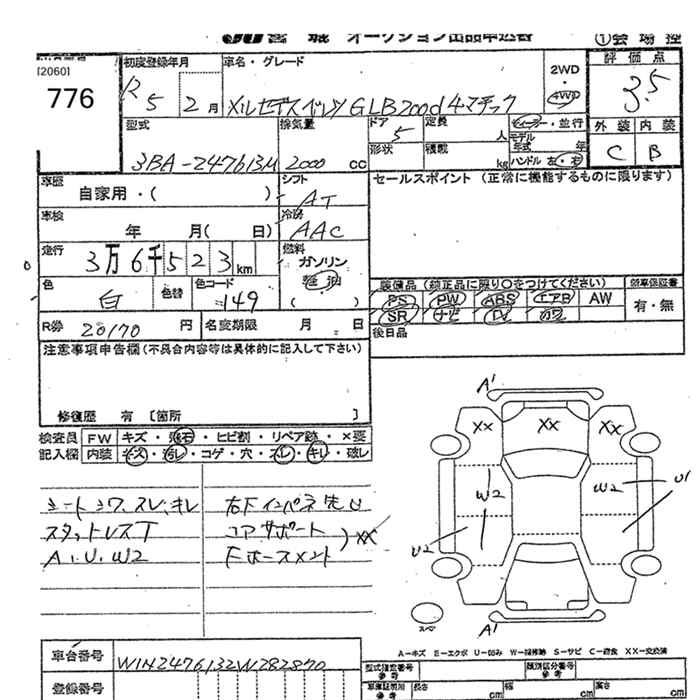 JU宮城 オークション出品申込書 ①会場控
[2060]
776
初度登録年月 R5 2月
車名・グレード
メルセデスベンツ GLB200d 4マチック
2WD・4WD
評価点 3.5
外装 内装
C B
型式 3BA-247613M
排気量 2000 cc
ドア 5
定員 人
形状
積載 kg
ディーラー・並行
モデル年式 年
ハンドル 左・右
車歴 自家用・( )
シフト AT
セールスポイント (正常に機能するものに限ります)
車検 年 月( 日)
冷房 AAC
走行 3万6千523km
燃料 ガソリン 軽油 ( )
色 白
色替
色コード 149
装備品(純正品に限り○をつけてください)
PS PW ABS エアB AW
SR ナビ TV カワ
新車保証書 有・無
R券 20170 円
名変期限 月 日
後日品
注意事項申告欄(不具合内容等は具体的に記入して下さい)
修復歴 有 [箇所 ]
検査員記入欄
FW キズ・飛石・ヒビ割・リペア跡・×要
内装 キズ・汚レ・コゲ・穴・スレ・キレ・破レ
シートシワ、スレ、キレ
スタットレスT
A、U、W2
右Fインパネ先U
コアサポート
Fホースメント
)XX
A1
XX XX XX
W2 W2 U1
U2
スペア
A1
A-キズ E-エクボ U-凹み W-補修跡 S-サビ C-腐食 XX-交換済
車台番号 W1N2476132W282870
登録番号
型式指定番号 参考
類別区分番号 参考
車庫証明用 参考
長さ cm
幅 cm
高さ cm